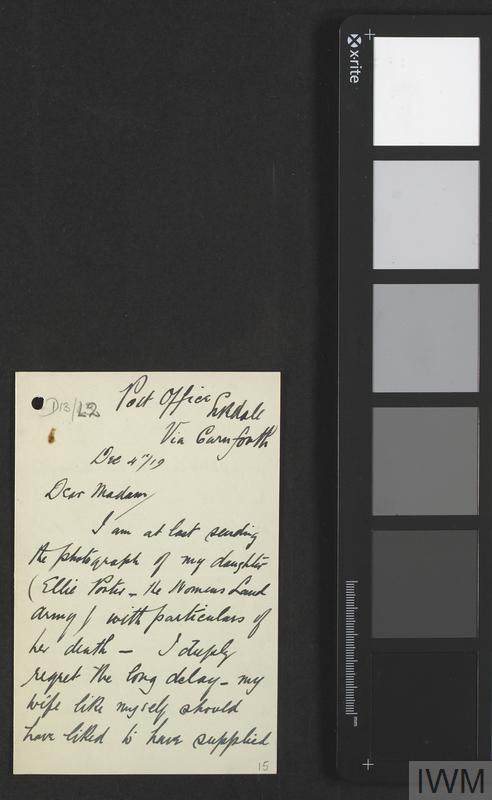 x-rite
D13/L2
Post Office Eskdale
Via Carnforth
Dec 4th/19
Dear Madam
I am at last sending
the photograph of my daughter
(Ellie Porter - the Womens Land
Army) with particulars of
her death - I deeply
regret the long delay - my
wife like myself should
have liked to have supplied
15
mm
IWM